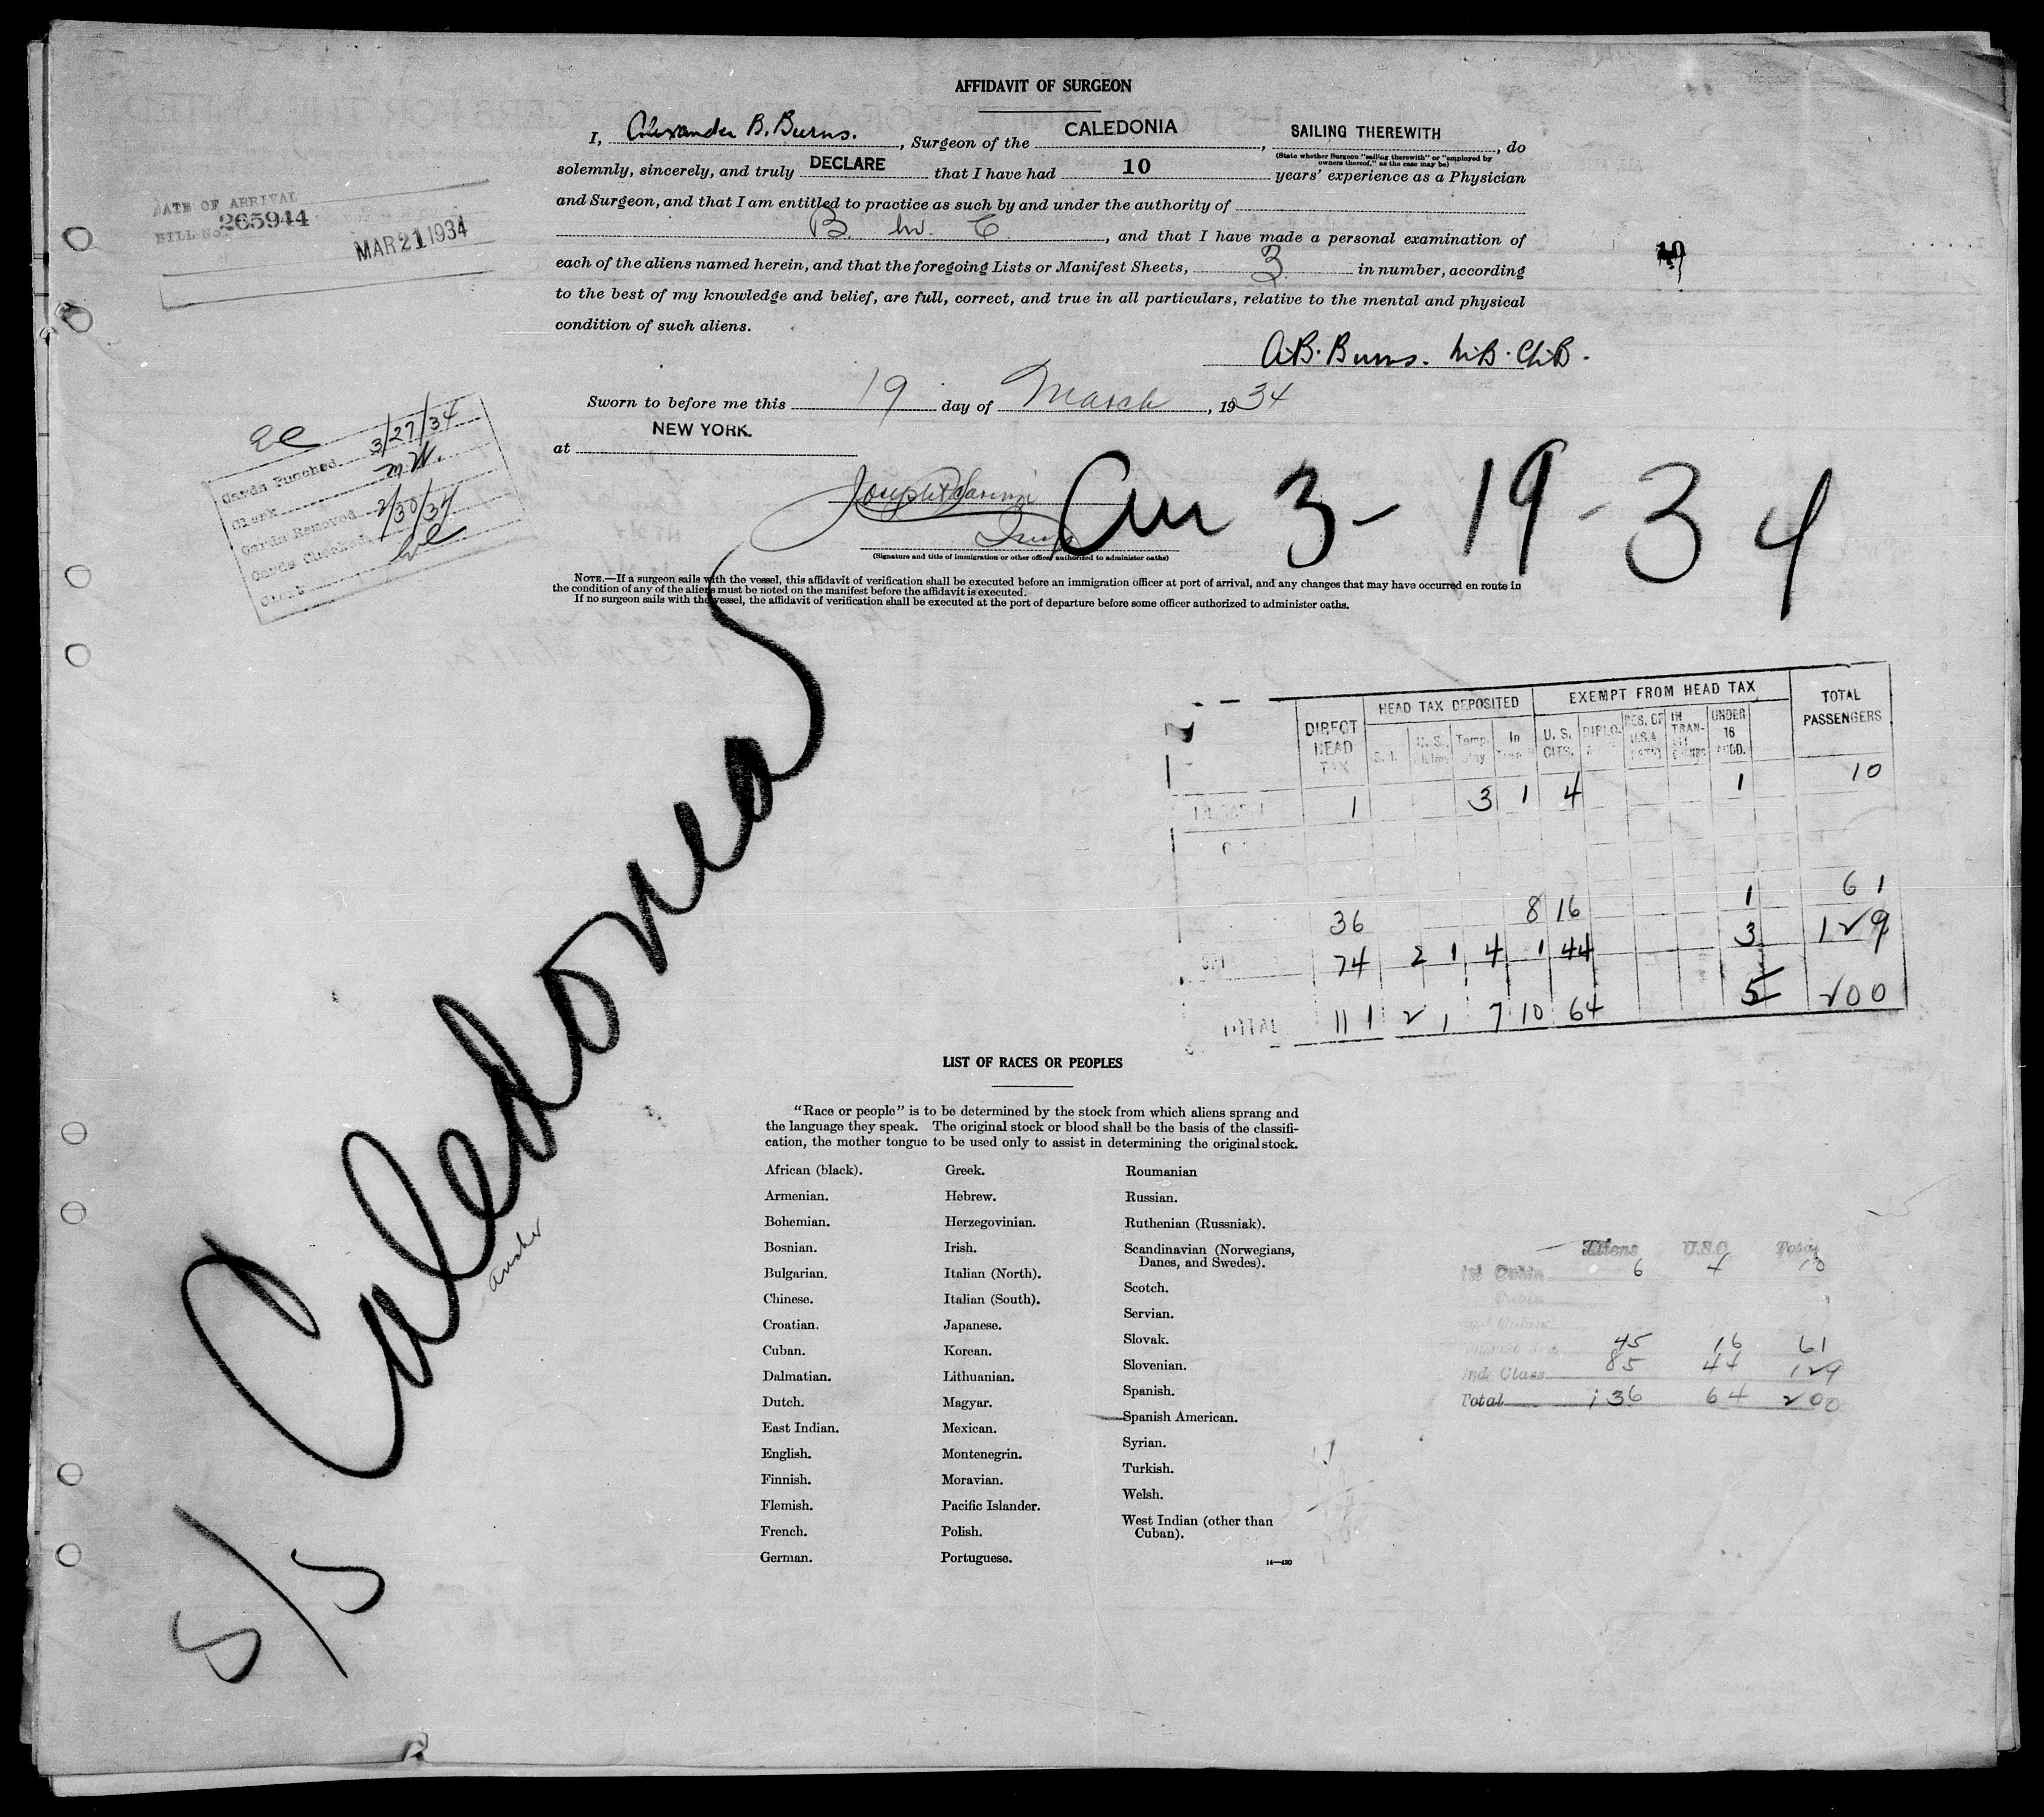 AFFIDAVIT OF SURGEON
I, Alexander B. Burns. , Surgeon of the CALEDONIA , SAILING THEREWITH , do
(State whether Surgeon "sailing therewith" or "employed by owners thereof," as the case may be)
solemnly, sincerely, and truly DECLARE that I have had 10 years' experience as a Physician
and Surgeon, and that I am entitled to practice as such by and under the authority of
B. M. C. , and that I have made a personal examination of
each of the aliens named herein, and that the foregoing Lists or Manifest Sheets, 3 in number, according
to the best of my knowledge and belief, are full, correct, and true in all particulars, relative to the mental and physical
condition of such aliens.
A.B. Burns. M.B. Ch.B.
Sworn to before me this 19 day of March , 1934
at NEW YORK.
(Signature and title of immigration or other officer authorized to administer oaths)
NOTE.—If a surgeon sails with the vessel, this affidavit of verification shall be executed before an immigration officer at port of arrival, and any changes that may have occurred en route in
the condition of any of the aliens must be noted on the manifest before the affidavit is executed.
If no surgeon sails with the vessel, the affidavit of verification shall be executed at the port of departure before some officer authorized to administer oaths.
DATE OF ARRIVAL
BILL No. 265944
MAR 21 1934
19
Cards Punched 3/27/34
Clerk M.W.
Cards Removed
Cards Checked
Clerk
3-19-34
S/S Caledonia
Anchor
DIRECT HEAD TAX
HEAD TAX DEPOSITED
EXEMPT FROM HEAD TAX
TOTAL PASSENGERS
S.I. U.S. Claims Temp. Stay In U.S. CITS. DIPLO. RES. OF U.S.A. IN TRAN- UNDER 16 ACCD.
1 3 1 4 1 10
36 8 16 1 61
74 2 1 4 1 44 3 129
TOTAL 111 2 1 7 10 64 5 200
LIST OF RACES OR PEOPLES
"Race or people" is to be determined by the stock from which aliens sprang and
the language they speak. The original stock or blood shall be the basis of the classifi-
cation, the mother tongue to be used only to assist in determining the original stock.
African (black).
Armenian.
Bohemian.
Bosnian.
Bulgarian.
Chinese.
Croatian.
Cuban.
Dalmatian.
Dutch.
East Indian.
English.
Finnish.
Flemish.
French.
German.
Greek.
Hebrew.
Herzegovinian.
Irish.
Italian (North).
Italian (South).
Japanese.
Korean.
Lithuanian.
Magyar.
Mexican.
Montenegrin.
Moravian.
Pacific Islander.
Polish.
Portuguese.
Roumanian
Russian.
Ruthenian (Russniak).
Scandinavian (Norwegians,
Danes, and Swedes).
Scotch.
Servian.
Slovak.
Slovenian.
Spanish.
Spanish American.
Syrian.
Turkish.
Welsh.
West Indian (other than
Cuban).
14—430
Aliens U.S.C. Total
1st Cabin 6 4 10
Cabin
45 16 61
Class 85 44 129
Total 136 64 200